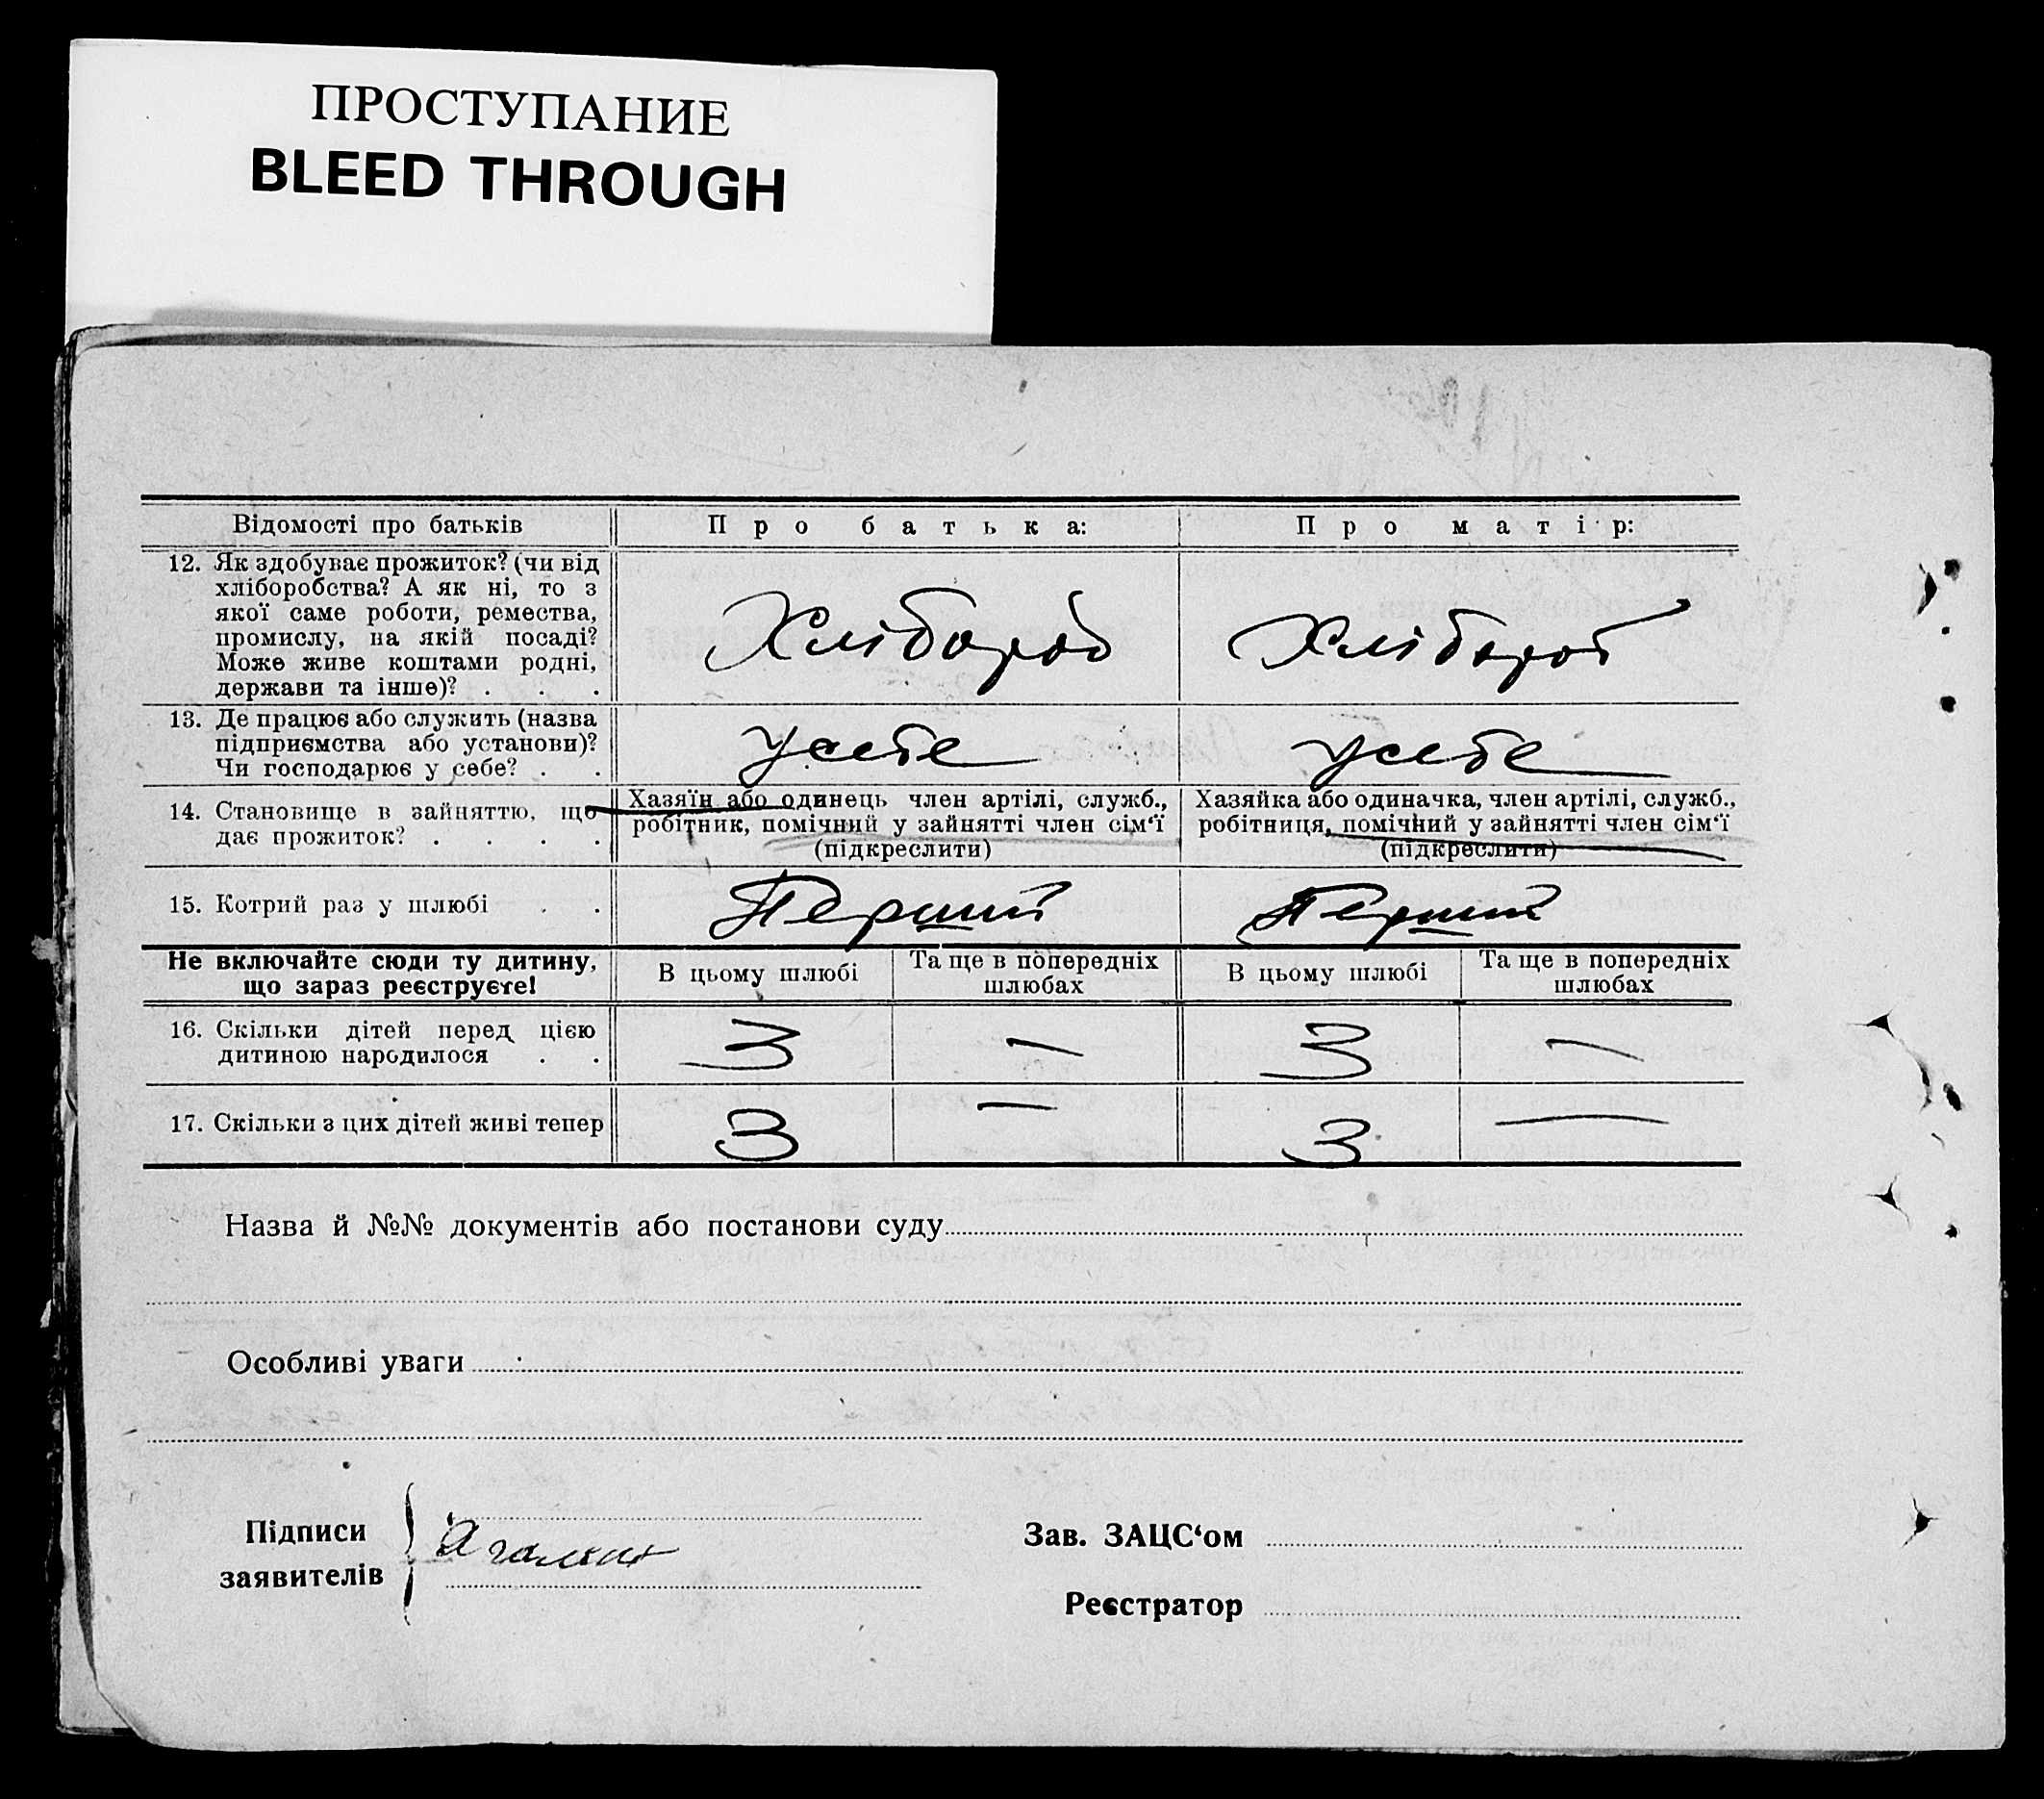 ПРОСТУПАНИЕ
BLEED THROUGH
Відомості про батьків
Про батька:
Про матір:
12. Як здобуває прожиток? (чи від
хліборобства? А як ні, то з
якої саме роботи, ремества,
промислу, на якій посаді?
Може живе коштами родні,
держави та інше)? . . .
Хлібороб
Хлібороб
13. Де працює або служить (назва
підприємства або установи)?
Чи господарює у себе? . .
усебе
усебе
14. Становище в зайняттю, що
дає прожиток? . . . .
Хазяїн або одинець член артілі, служб.,
робітник, помічний у зайнятті член сім‘ї
(підкреслити)
Хазяйка або одиначка, член артілі, служб.,
робітниця, помічний у зайнятті член сім‘ї
(підкреслити)
15. Котрий раз у шлюбі . .
Перший
Перший
Не включайте сюди ту дитину,
що зараз реєструєте!
В цьому шлюбі
Та ще в попередніх
шлюбах
В цьому шлюбі
Та ще в попередніх
шлюбах
16. Скільки дітей перед цією
дитиною народилося . .
3
—
3
—
17. Скільки з цих дітей живі тепер
3
—
3
—
Назва й №№ документів або постанови суду
Особливі уваги
Підписи
заявителів
Зав. ЗАЦС‘ом
Реєстратор